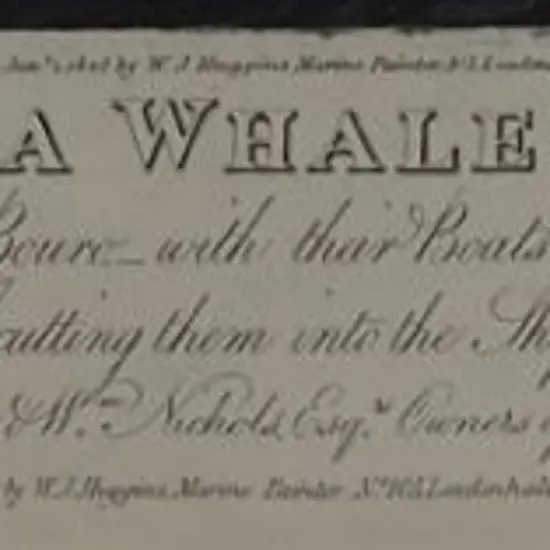 by W. J. Huggins Marine Painter
A WHALE
Bouro with thair Boats
Cutting them into the
& Wm. Nichols, Esqrs. Owners
by W. J. Huggins Marine Painter No. 105 Leadenhall